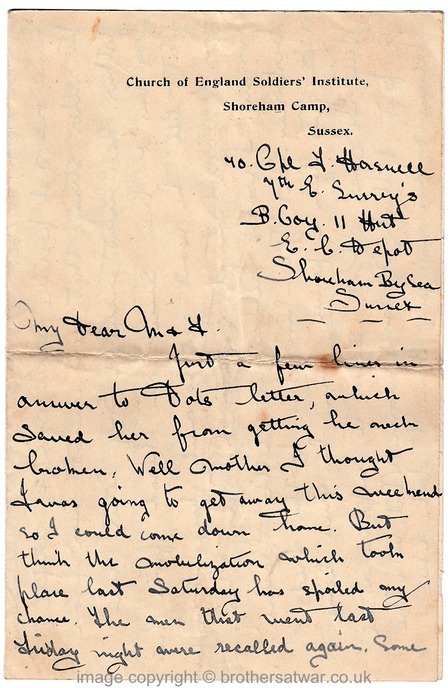 Church of England Soldiers' Institute,
Shoreham Camp,
Sussex.
70. Cpl F. Hasnell
7th E. Surrey's
B. Coy. 11 Hut
E. C. Depot
Shoreham By Sea
Sussex
My Dear M & F.
Just a few lines in
answer to Dots letter, which
saved her from getting he neck
broken. Well Mother I thought
I was going to get away this weekend
so I could come down home. But
think the mobilization which took
place last Saturday has spoiled my
chance. The men that went last
Friday night were recalled again. Some
image copyright © brothersatwar.co.uk